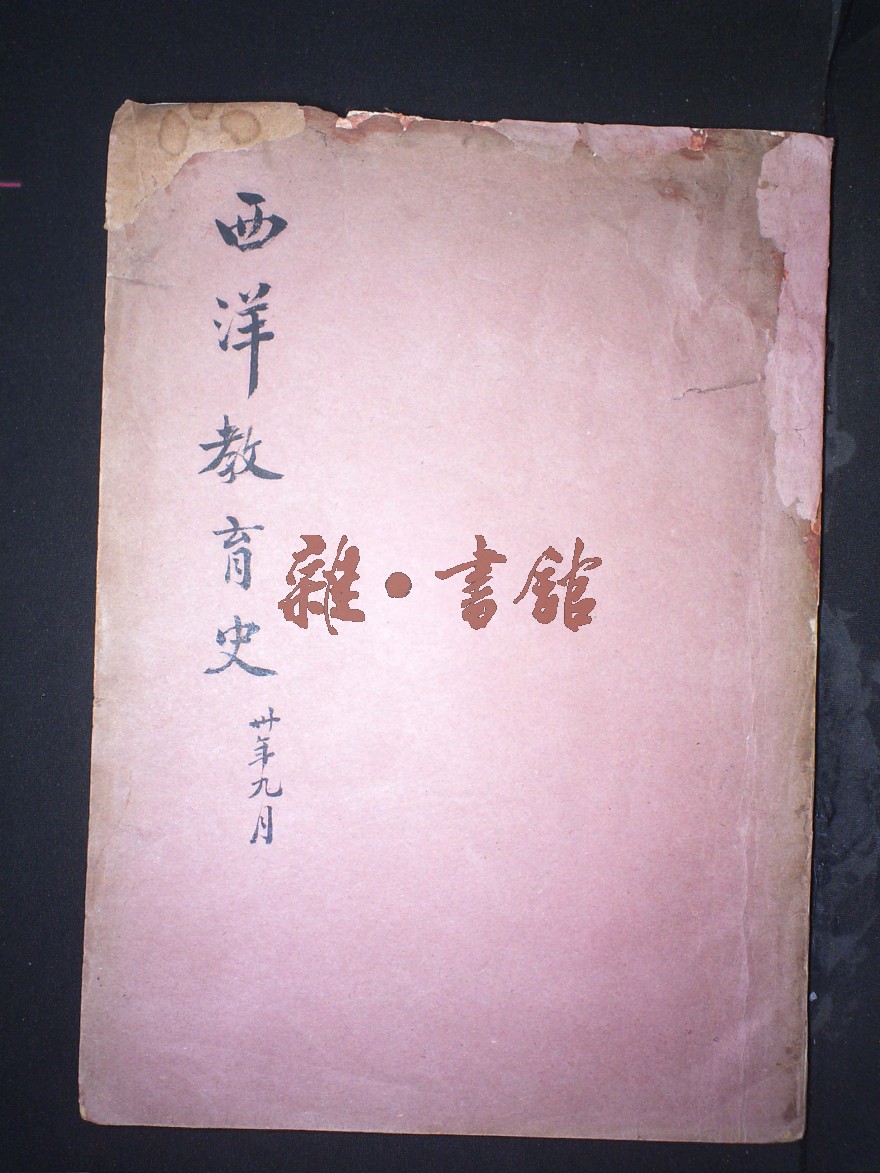 西洋教育史
卅年九月
雜•書館